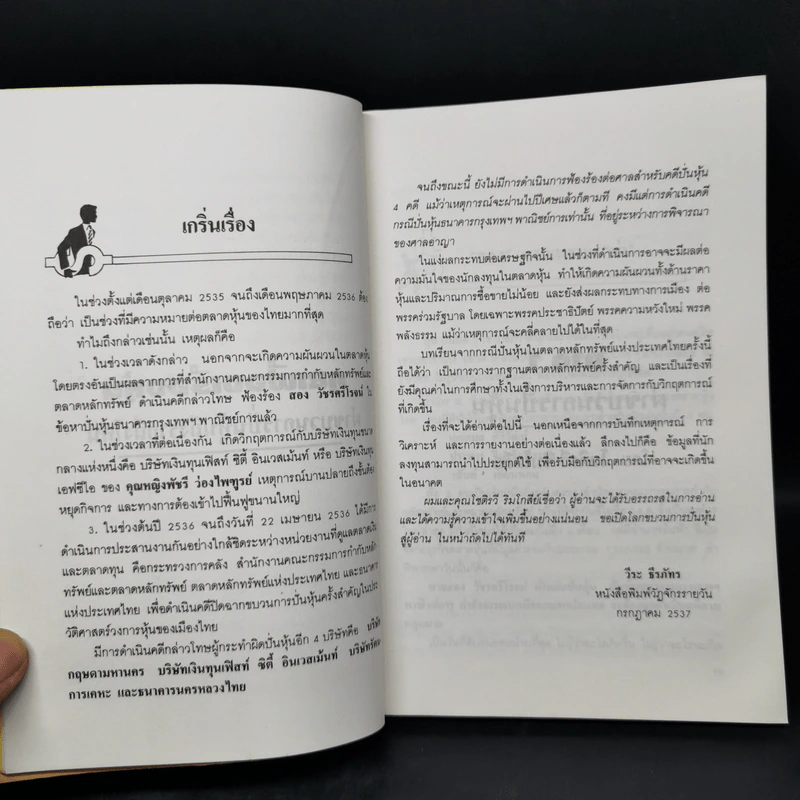 เกริ่นเรื่อง
ในช่วงตั้งแต่เดือนตุลาคม 2535 จนถึงเดือนพฤษภาคม 2536 ต้อง
ถือว่า เป็นช่วงที่มีความหมายต่อตลาดหุ้นของไทยมากที่สุด
ทำไมถึงกล่าวเช่นนั้น เหตุผลก็คือ
1. ในช่วงเวลาดังกล่าว นอกจากจะเกิดความผันผวนในตลาดหุ้น
โดยตรงอันเป็นผลจากการที่สำนักงานคณะกรรมการกำกับหลักทรัพย์และ
ตลาดหลักทรัพย์ ดำเนินคดีกล่าวโทษ ฟ้องร้อง สอง วัชรศรีโรจน์ ใน
ข้อหาปั่นหุ้นธนาคารกรุงเทพฯ พาณิชย์การแล้ว
2. ในช่วงเวลาที่ต่อเนื่องกัน เกิดวิกฤตการณ์กับบริษัทเงินทุนขนาด
กลางแห่งหนึ่งคือ บริษัทเงินทุนเฟิสท์ ซิตี้ อินเวสเม้นท์ หรือ บริษัทเงินทุน
เอฟซีไอ ของ คุณหญิงพัชรี ว่องไพฑูรย์ เหตุการณ์บานปลายถึงขั้นต้อง
หยุดกิจการ และทางการต้องเข้าไปฟื้นฟูขนานใหญ่
3. ในช่วงต้นปี 2536 จนถึงวันที่ 22 เมษายน 2536 ได้มีการ
ดำเนินการประสานงานกันอย่างใกล้ชิดระหว่างหน่วยงานที่ดูแลตลาดเงิน
และตลาดทุน คือกระทรวงการคลัง สำนักงานคณะกรรมการกำกับหลัก
ทรัพย์และตลาดหลักทรัพย์ ตลาดหลักทรัพย์แห่งประเทศไทย และธนาคาร
แห่งประเทศไทย เพื่อดำเนินคดีปิดฉากขบวนการปั่นหุ้นครั้งสำคัญในประ
วัติศาสตร์วงการหุ้นของเมืองไทย
มีการดำเนินคดีกล่าวโทษผู้กระทำผิดปั่นหุ้นอีก 4 บริษัทคือ บริษัท
กฤษดามหานคร บริษัทเงินทุนเฟิสท์ ซิตี้ อินเวสเม้นท์ บริษัทรัตน
การเคหะ และธนาคารนครหลวงไทย
จนถึงขณะนี้ ยังไม่มีการดำเนินการฟ้องร้องต่อศาลสำหรับคดีปั่นหุ้น
4 คดี แม้ว่าเหตุการณ์จะผ่านไปปีเศษแล้วก็ตามที คงมีแต่การดำเนินคดี
กรณีปั่นหุ้นธนาคารกรุงเทพฯ พาณิชย์การเท่านั้น ที่อยู่ระหว่างการพิจารณา
ของศาลอาญา
ในแง่ผลกระทบต่อเศรษฐกิจนั้น ในช่วงที่ดำเนินการอาจจะมีผลต่อ
ความมั่นใจของนักลงทุนในตลาดหุ้น ทำให้เกิดความผันผวนทั้งด้านราคา
หุ้นและปริมาณการซื้อขายไม่น้อย และยังส่งผลกระทบทางการเมือง ต่อ
พรรคร่วมรัฐบาล โดยเฉพาะพรรคประชาธิปัตย์ พรรคความหวังใหม่ พรรค
พลังธรรม แม้ว่าเหตุการณ์จะคลี่คลายไปได้ในที่สุด
บทเรียนจากกรณีปั่นหุ้นในตลาดหลักทรัพย์แห่งประเทศไทยครั้งนี้
ถือได้ว่า เป็นการวางรากฐานตลาดหลักทรัพย์ครั้งสำคัญ และเป็นเรื่องที่
ยังมีคุณค่าในการศึกษาทั้งในเชิงการบริหารและการจัดการกับวิกฤตการณ์
ที่เกิดขึ้น
เรื่องที่จะได้อ่านต่อไปนี้ นอกเหนือจากการบันทึกเหตุการณ์ การ
วิเคราะห์ และการรายงานอย่างต่อเนื่องแล้ว ลึกลงไปก็คือ ข้อมูลที่นัก
ลงทุนสามารถนำไปประยุกต์ใช้ เพื่อรับมือกับวิกฤตการณ์ที่อาจจะเกิดขึ้น
ในอนาคต
ผมและคุณโชติรวี ริมโกสีย์เชื่อว่า ผู้อ่านจะได้รับอรรถรสในการอ่าน
และได้ความรู้ความเข้าใจเพิ่มขึ้นอย่างแน่นอน ขอเปิดโลกขบวนการปั่นหุ้น
สู่ผู้อ่าน ในหน้าถัดไปได้ทันที
วีระ ธีรภัทร
หนังสือพิมพ์วัฏจักรรายวัน
กรกฎาคม 2537